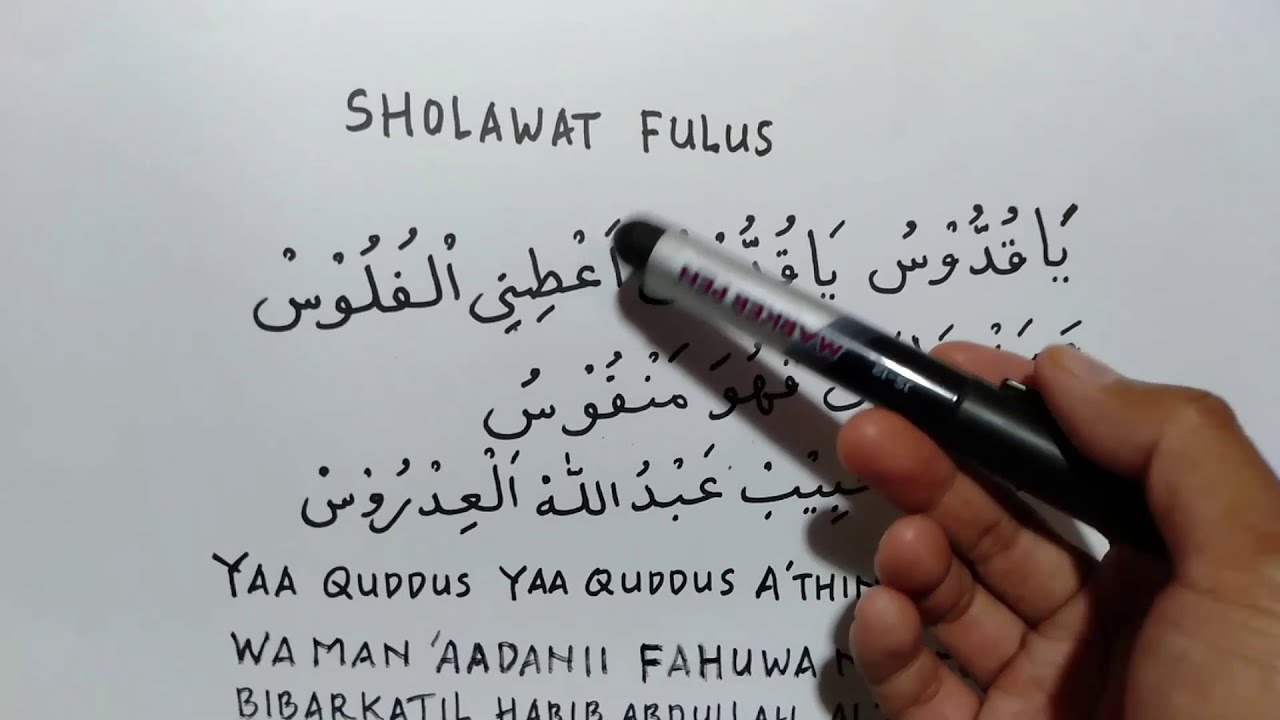 SHOLAWAT FULUS
يَا قُدُّوْسُ يَا اَعْطِنِي الْفُلُوْسْ
فَهُوَ مَنْقُوْسُ
عَبْدُ اللّٰهْ اَلْعِدْرُوْسْ
YAA QUDDUS YAA QUDDUS A'THIN
WA MAN 'AADANII FAHUWA
BIBARKATIL HABIB ABDULLAH
MARKER PEN